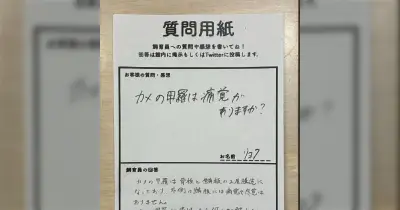 質問用紙
飼育員への質問や感想を書いてね！
回答は館内に掲示もしくはTwitterに投稿します。
お客様の質問・感想
カメの甲羅は痛覚が
ありますか？
お名前
飼育員の回答
カメの甲羅は骨板と鱗板の二層構造に
なっており、外側の鱗板には痛覚や感覚は
ありません。